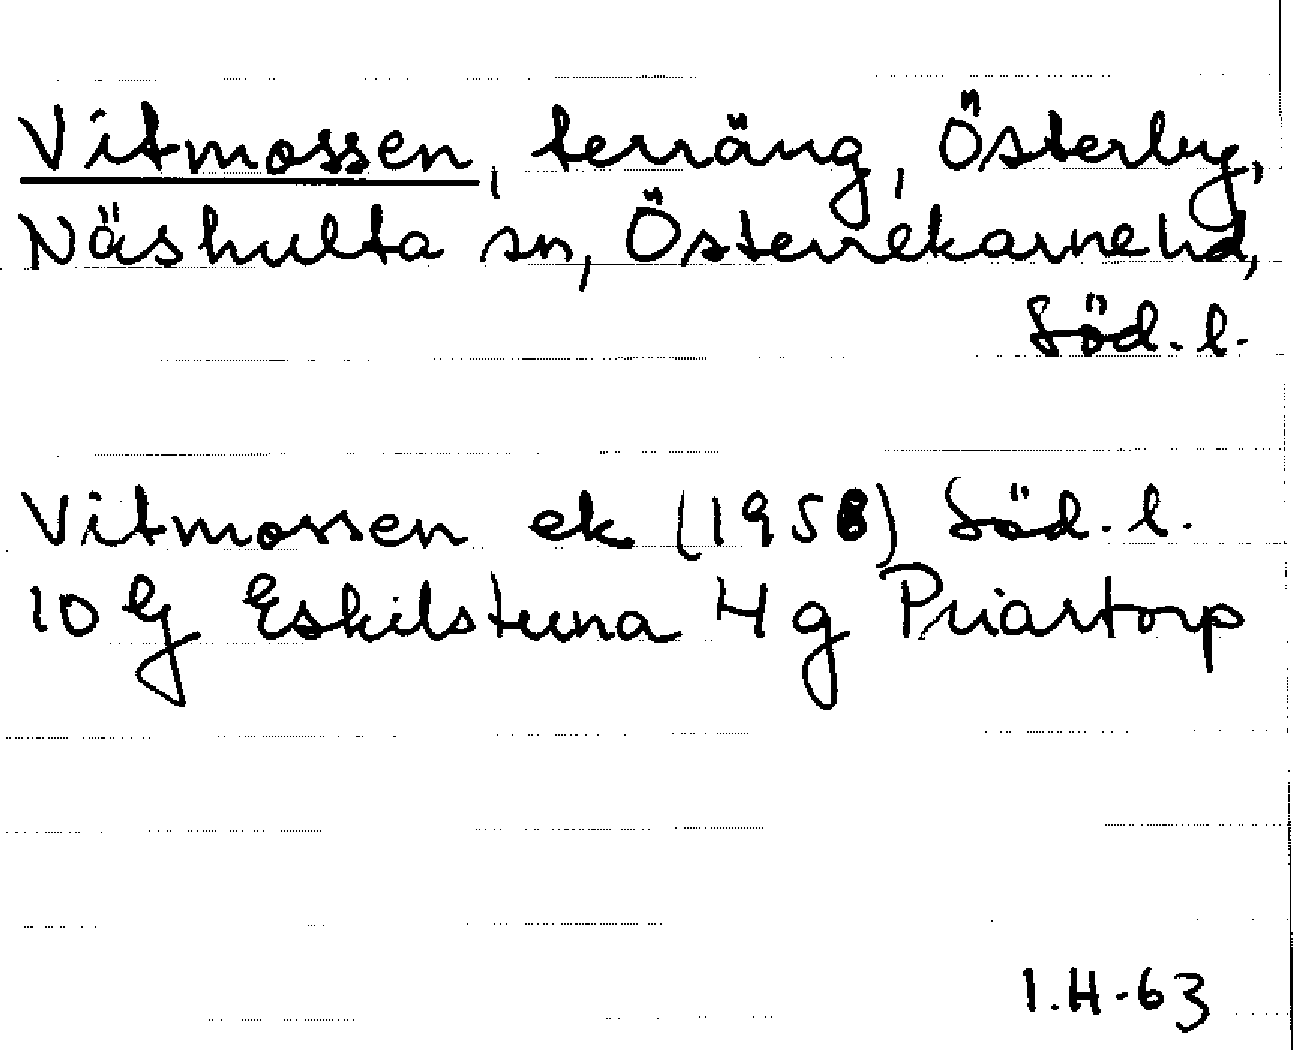 Vitmossen, terräng, Österby,
Näshulta sn, Österrekarne hd,
Söd. l.
Vitmossen ek (1958) Söd. l.
10 G Eskilstuna 4 g Priartorp
1.H-63